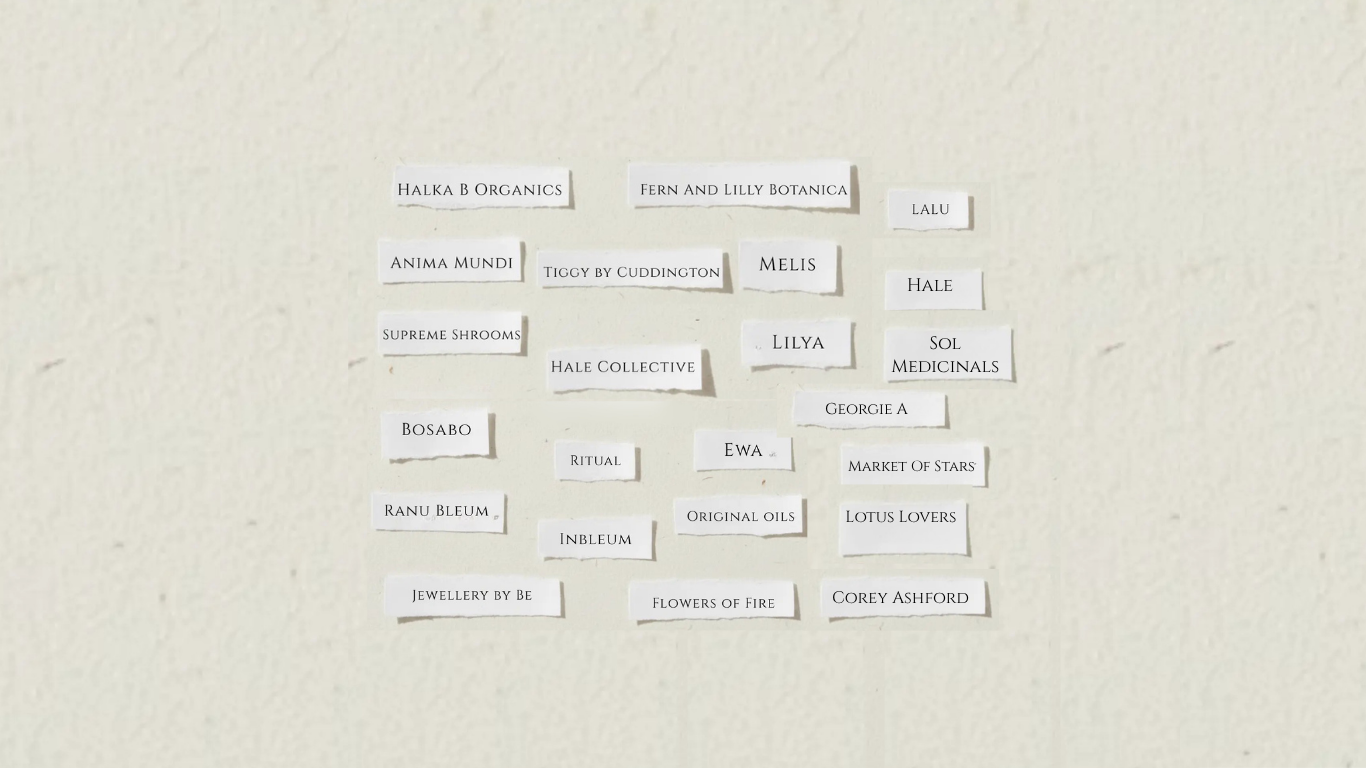 HALKA B ORGANICS
FERN AND LILLY BOTANICA
LALU
ANIMA MUNDI
TIGGY BY CUDDINGTON
MELIS
HALE
SUPREME SHROOMS
HALE COLLECTIVE
LILYA
SOL
MEDICINALS
GEORGIE A
BOSABO
RITUAL
EWA
MARKET OF STARS
RANU BLEUM
INBLEUM
ORIGINAL OILS
LOTUS LOVERS
JEWELLERY BY BE
FLOWERS OF FIRE
COREY ASHFORD